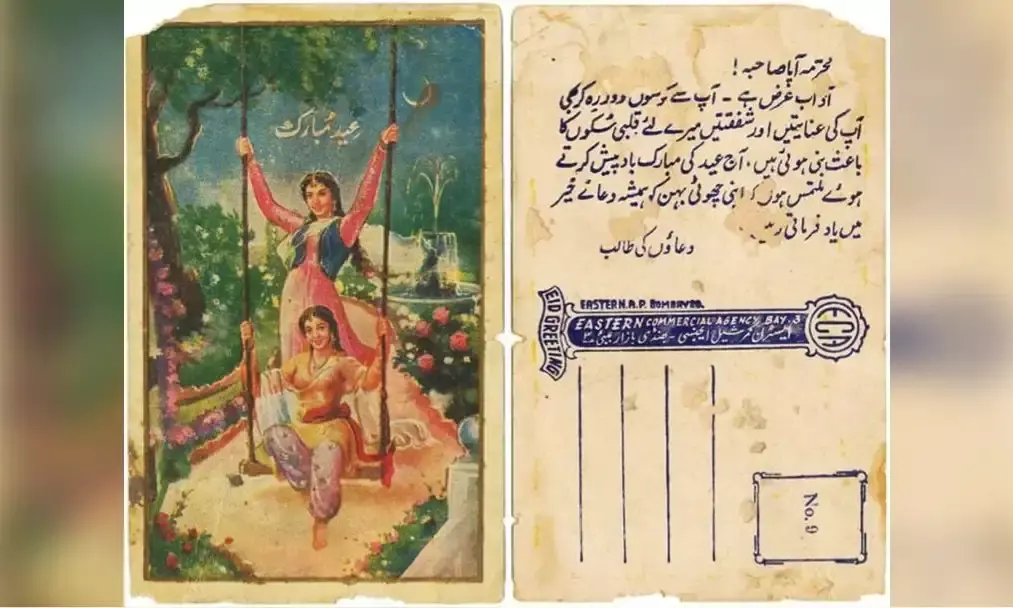 عید مبارک
محترمہ آپا صاحبہ!
آداب عرض ہے۔ آپ سے کوسوں دور رہ کر بھی
آپ کی عنایتیں اور شفقتیں میرے لئے قلبی سکوں کا
باعث بنی ہوئی ہیں، آج عید کی مبارک باد پیش کرتے
ہوئے ملتمس ہوں کہ اپنی چھوٹی بہن کو ہمیشہ دعائے خیر
میں یاد فرماتی
دعاؤں کی طالب
EASTERN.A.P. BOMBAY.
EID GREETING
EASTERN COMMERCIAL AGENCY, BAY. 3
ایسٹرن کمرشیل ایجنسی - بھنڈی بازار بمبئی ۳
ECA
No. 9